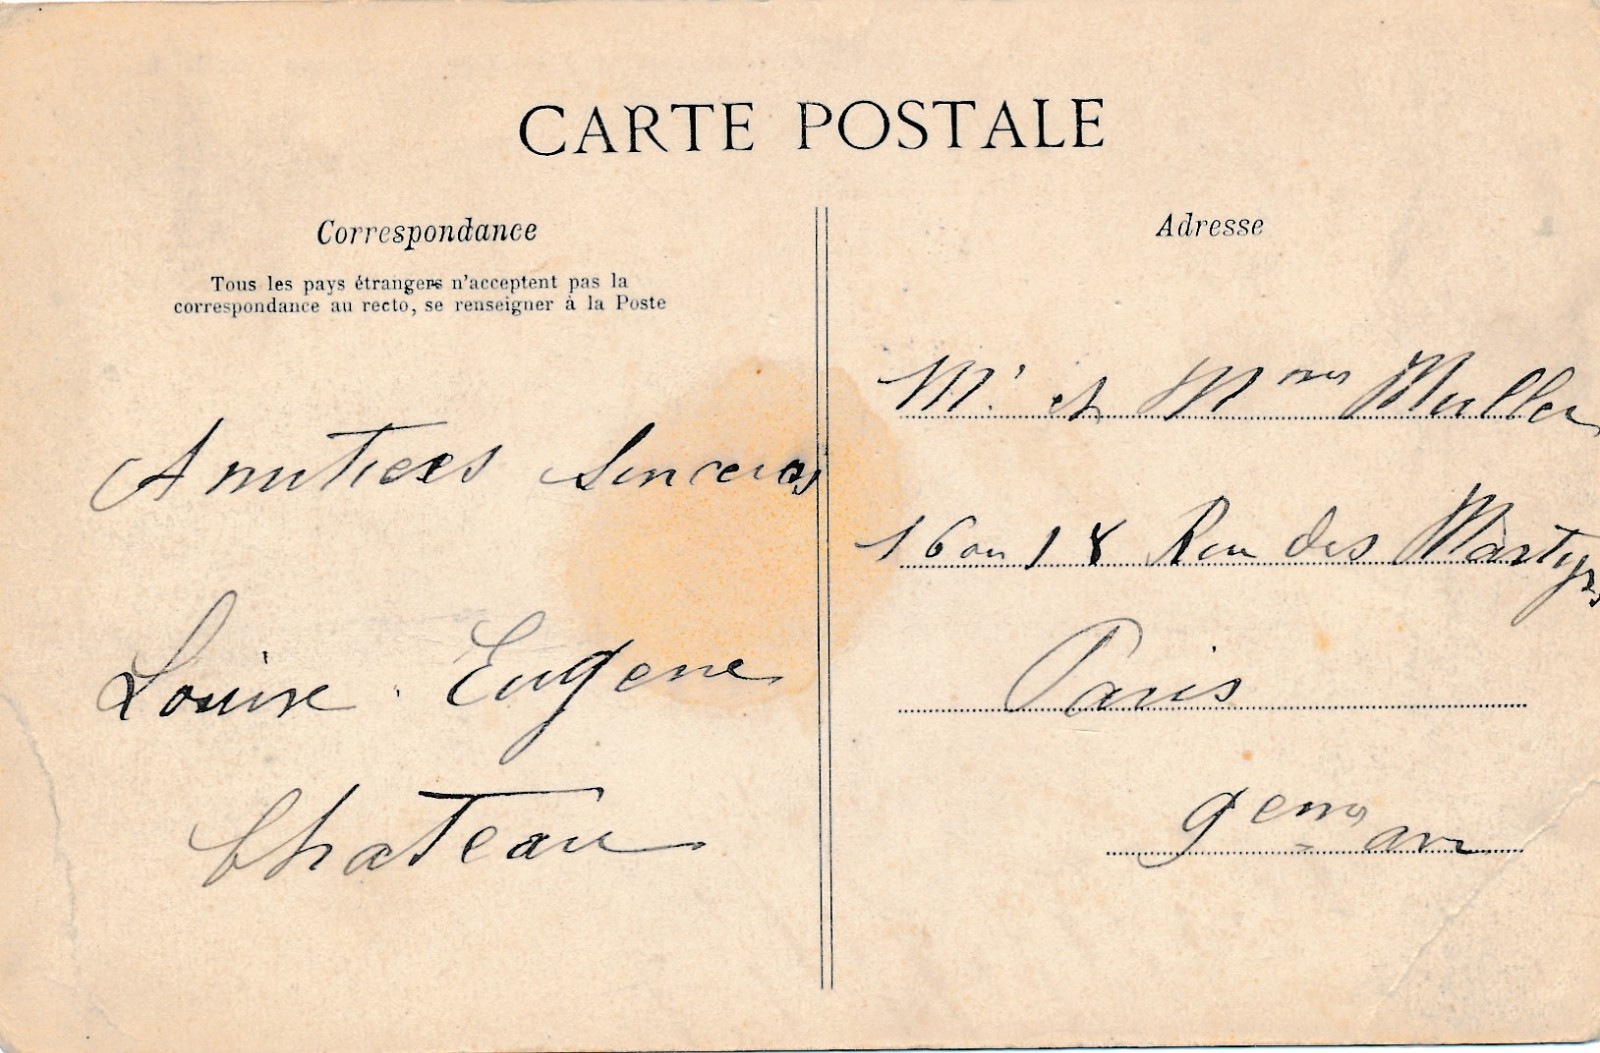 CARTE POSTALE
Correspondance
Tous les pays étrangers n'acceptent pas la
correspondance au recto, se renseigner à la Poste
Amitiees Sinceres
Louise Eugene
Chateau
Adresse
Mr et Mme Muller
16 ou 18 Rue des Martyrs
Paris
9eme arr